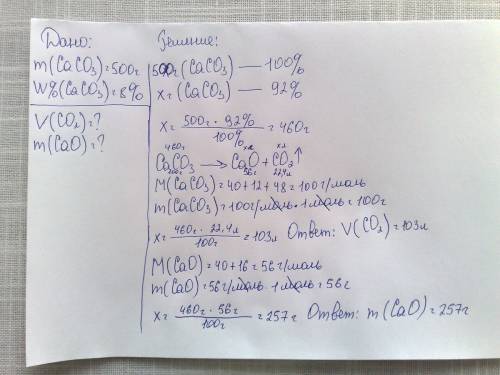 Дано:
m(CaCO₃)=500г
W%(CaCO₃)=8%
V(CO₂)=?
m(CaO)=?
Решение:
500г (CaCO₃) — 100%
x=(CaCO₃) — 92%
x = 500г · 92% / 100% = 460г
460г x=г x л
CaCO₃ → CaO + CO₂↑
100г 56г 22,4л
M(CaCO₃)=40+12+48=100г/моль
m(CaCO₃)=100г/моль · 1моль=100г
x= 460г · 22,4л / 100г = 103л Ответ: V(CO₂)=103л
M(CaO)=40+16=56г/моль
m(CaO)=56г/моль · 1моль=56г
x= 460г · 56г / 100г = 257г Ответ: m(CaO)=257г